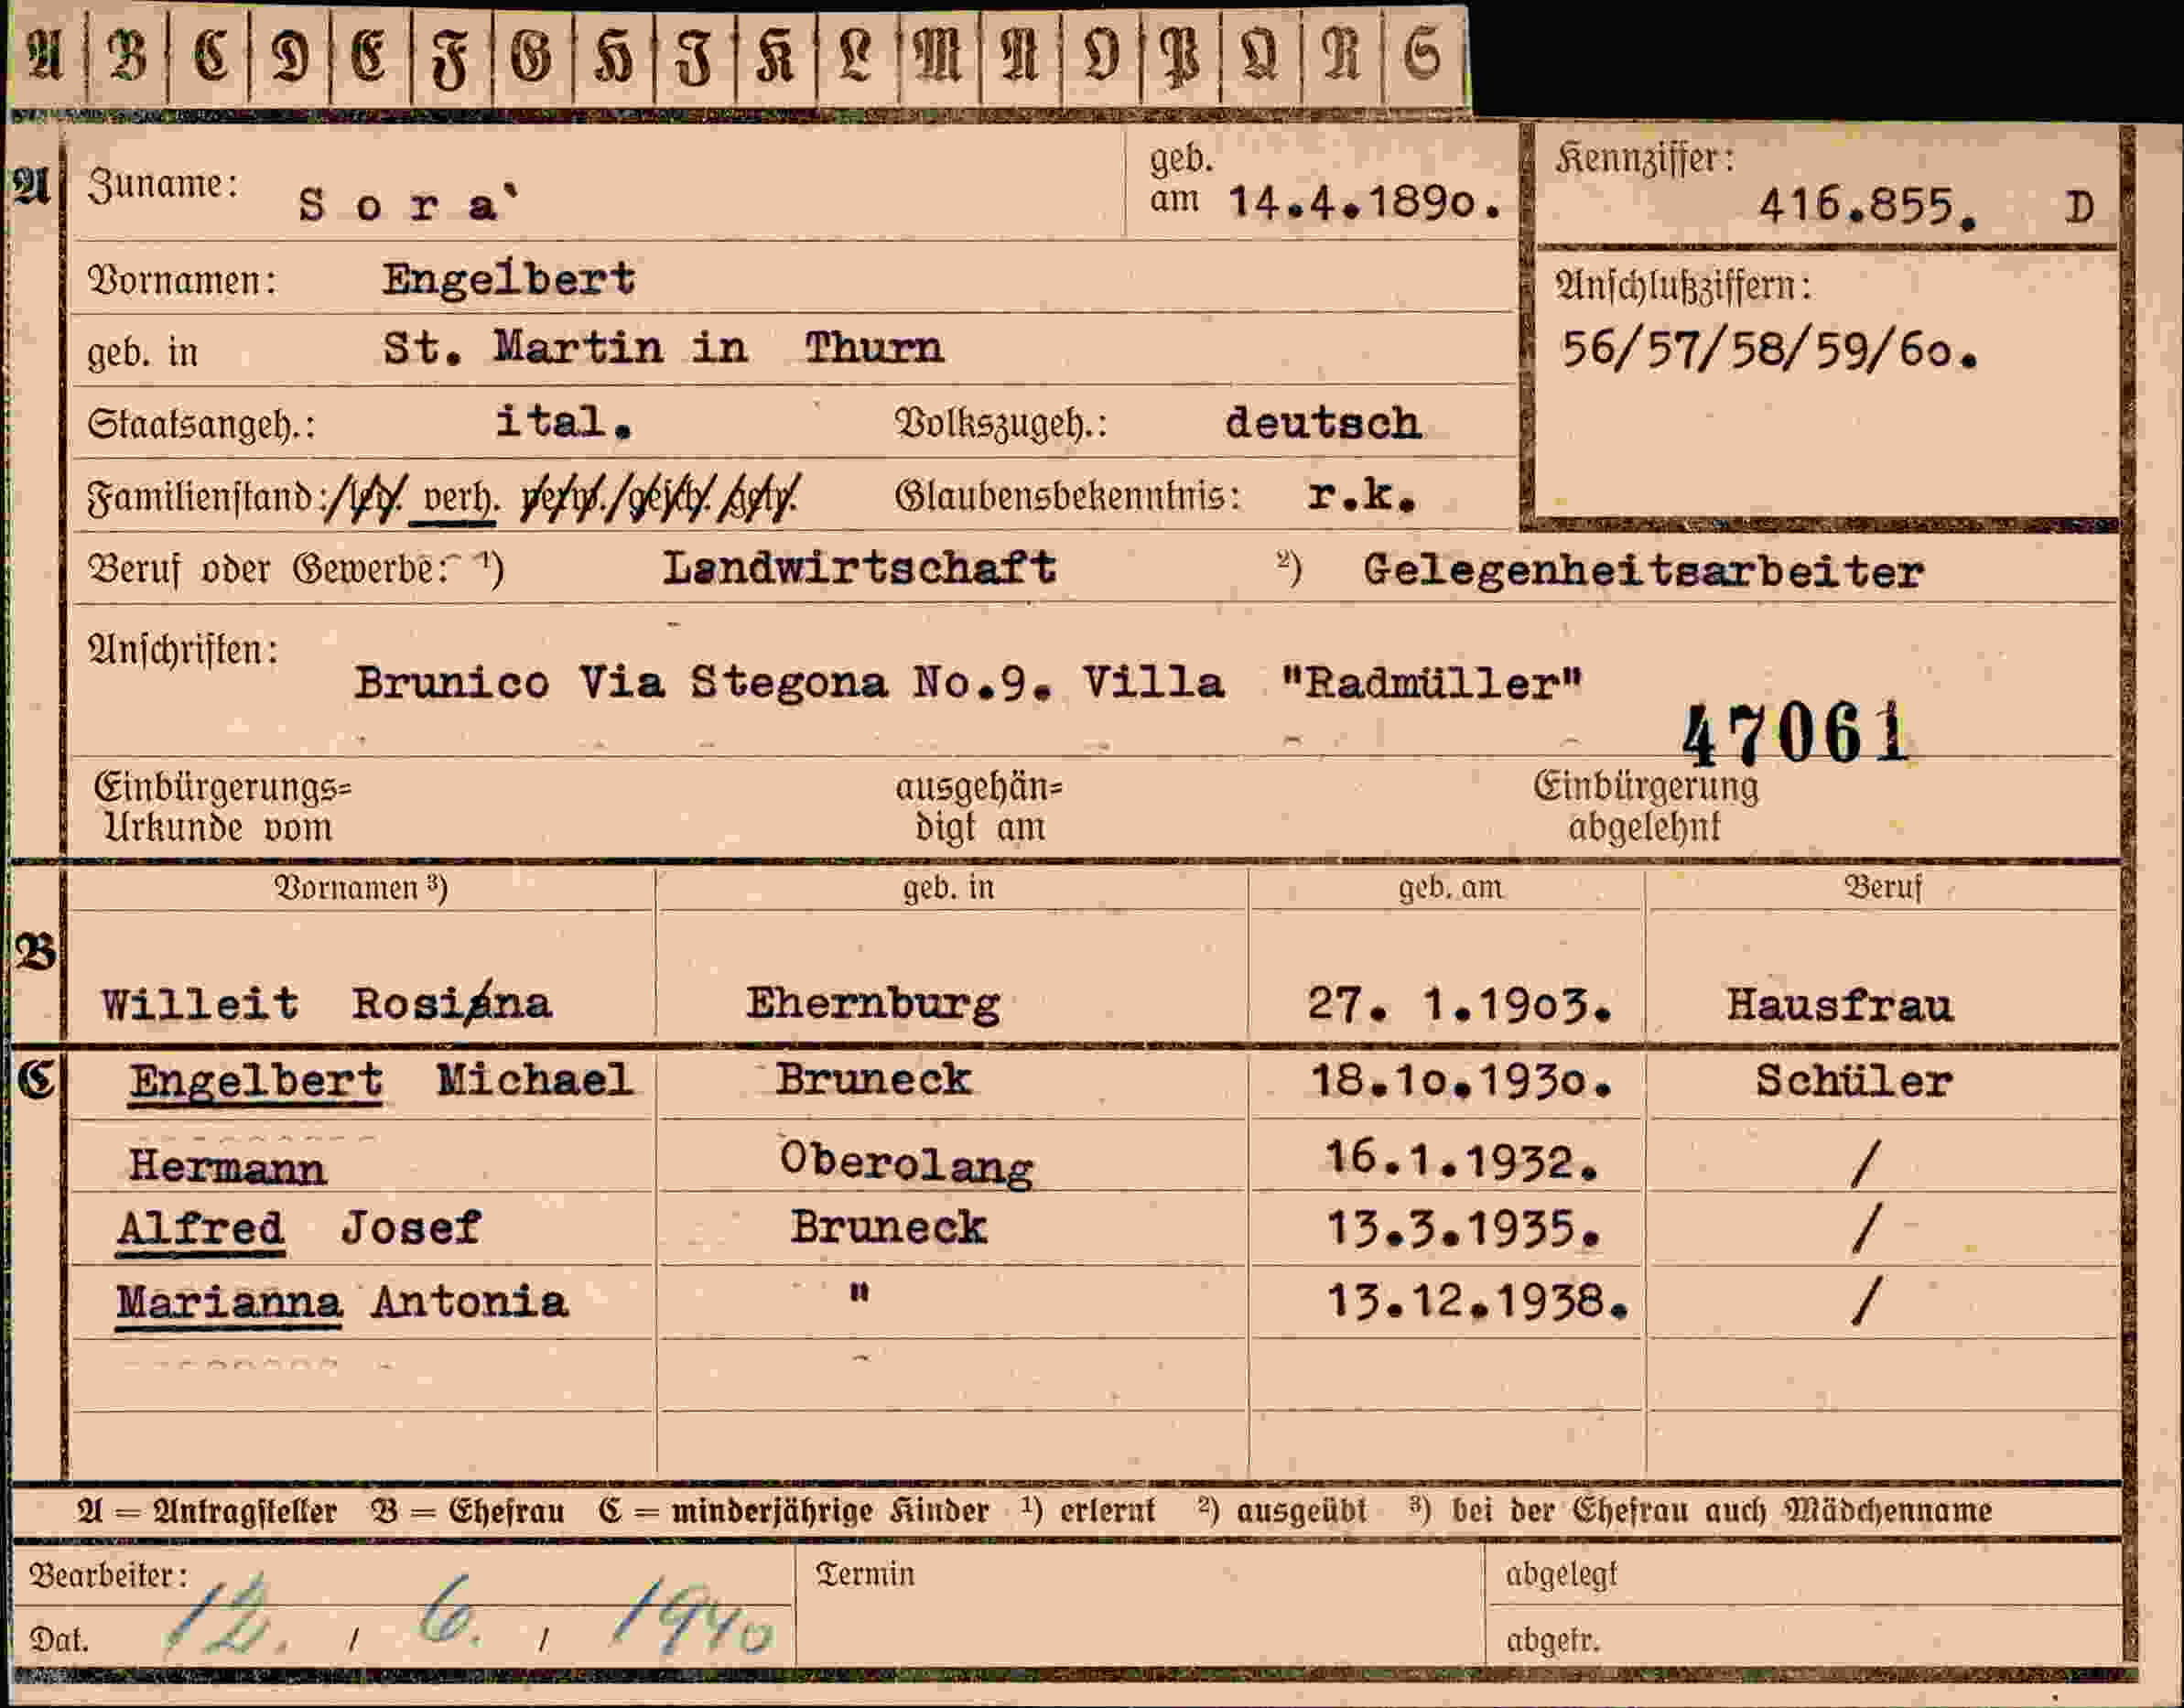 A B C D E F G H I K L M N O P Q R S
A Zuname: Sora` geb. am 14.4.1890. Kennziffer: 416.855. D
Vornamen: Engelbert Anschlußziffern:
geb. in St. Martin in Thurn 56/57/58/59/60.
Staatsangeh.: ital. Volkszugeh.: deutsch
Familienstand: led. verh. verw. gesch. getr. Glaubensbekenntnis: r.k.
Beruf oder Gewerbe: 1) Landwirtschaft 2) Gelegenheitsarbeiter
Anschriften:
Brunico Via Stegona No.9. Villa "Radmüller"
47061
Einbürgerungs= ausgehän= Einbürgerung
Urkunde vom digt am abgelehnt
Vornamen 3) geb. in geb. am Beruf
B
Willeit Rosina Ehernburg 27. 1.1903. Hausfrau
C Engelbert Michael Bruneck 18.10.1930. Schüler
Hermann Oberolang 16.1.1932. /
Alfred Josef Bruneck 13.3.1935. /
Marianna Antonia " 13.12.1938. /
A = Antragsteller B = Ehefrau C = minderjährige Kinder 1) erlernt 2) ausgeübt 3) bei der Ehefrau auch Mädchenname
Bearbeiter: Termin abgelegt
Dat. 12. / 6. / 1940 abgetr.